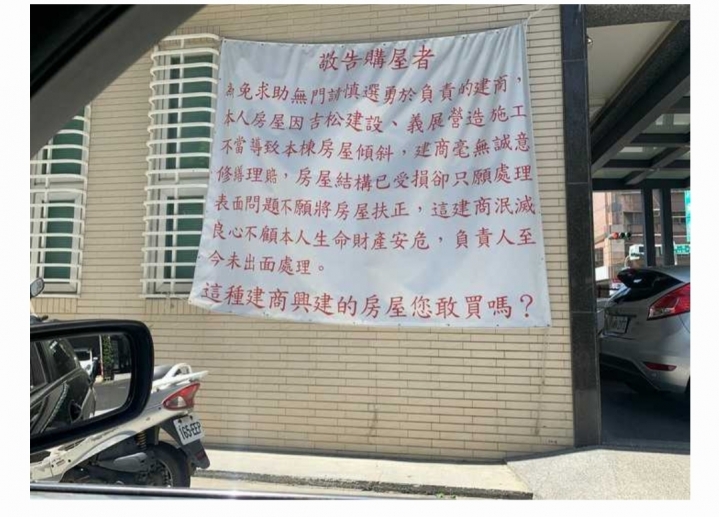 敬告購屋者
為免求助無門請慎選勇於負責的建商，
本人房屋因吉松建設、義展營造施工
不當導致本棟房屋傾斜，建商毫無誠意
修繕理賠，房屋結構已受損卻只願處理
表面問題不願將房屋扶正，這建商泯滅
良心不顧本人生命財產安危，負責人至
今未出面處理。
這種建商興建的房屋您敢買嗎？